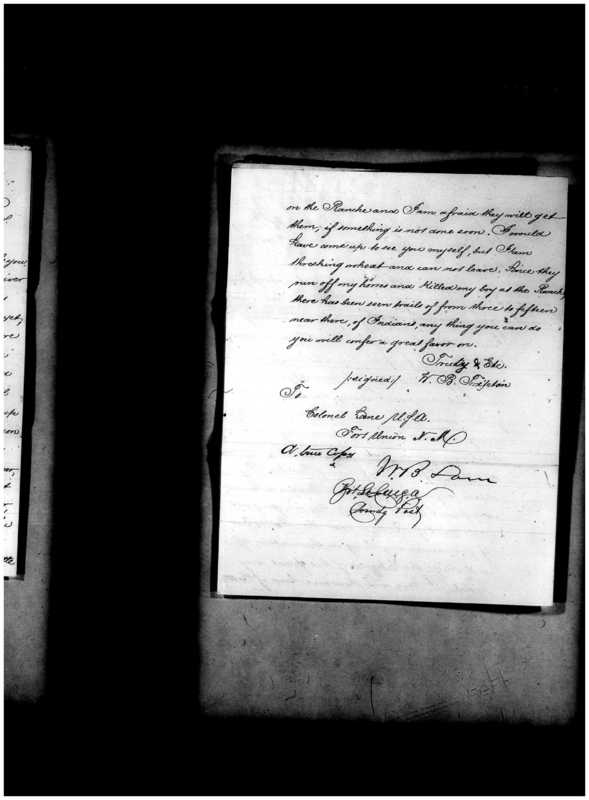 on the Ranche and I am afraid they will get
them, if something is not done soon. I would
have come up to see you myself, but I am
threshing wheat and can not leave. Since they
run off my horses and killed my boy at the Ranch,
there has been seen trails of from three to fifteen
near there, of Indians, any thing you can do
you will confer a great favor on.
Truely & Etc.
(signed) W. B. Tipton
To
Colonel Lane U.S.A.
Fort Union N. M.
A true Copy
W. B. Lane
Bvt. Lt. Col. U.S.A.
Comdg Post
you